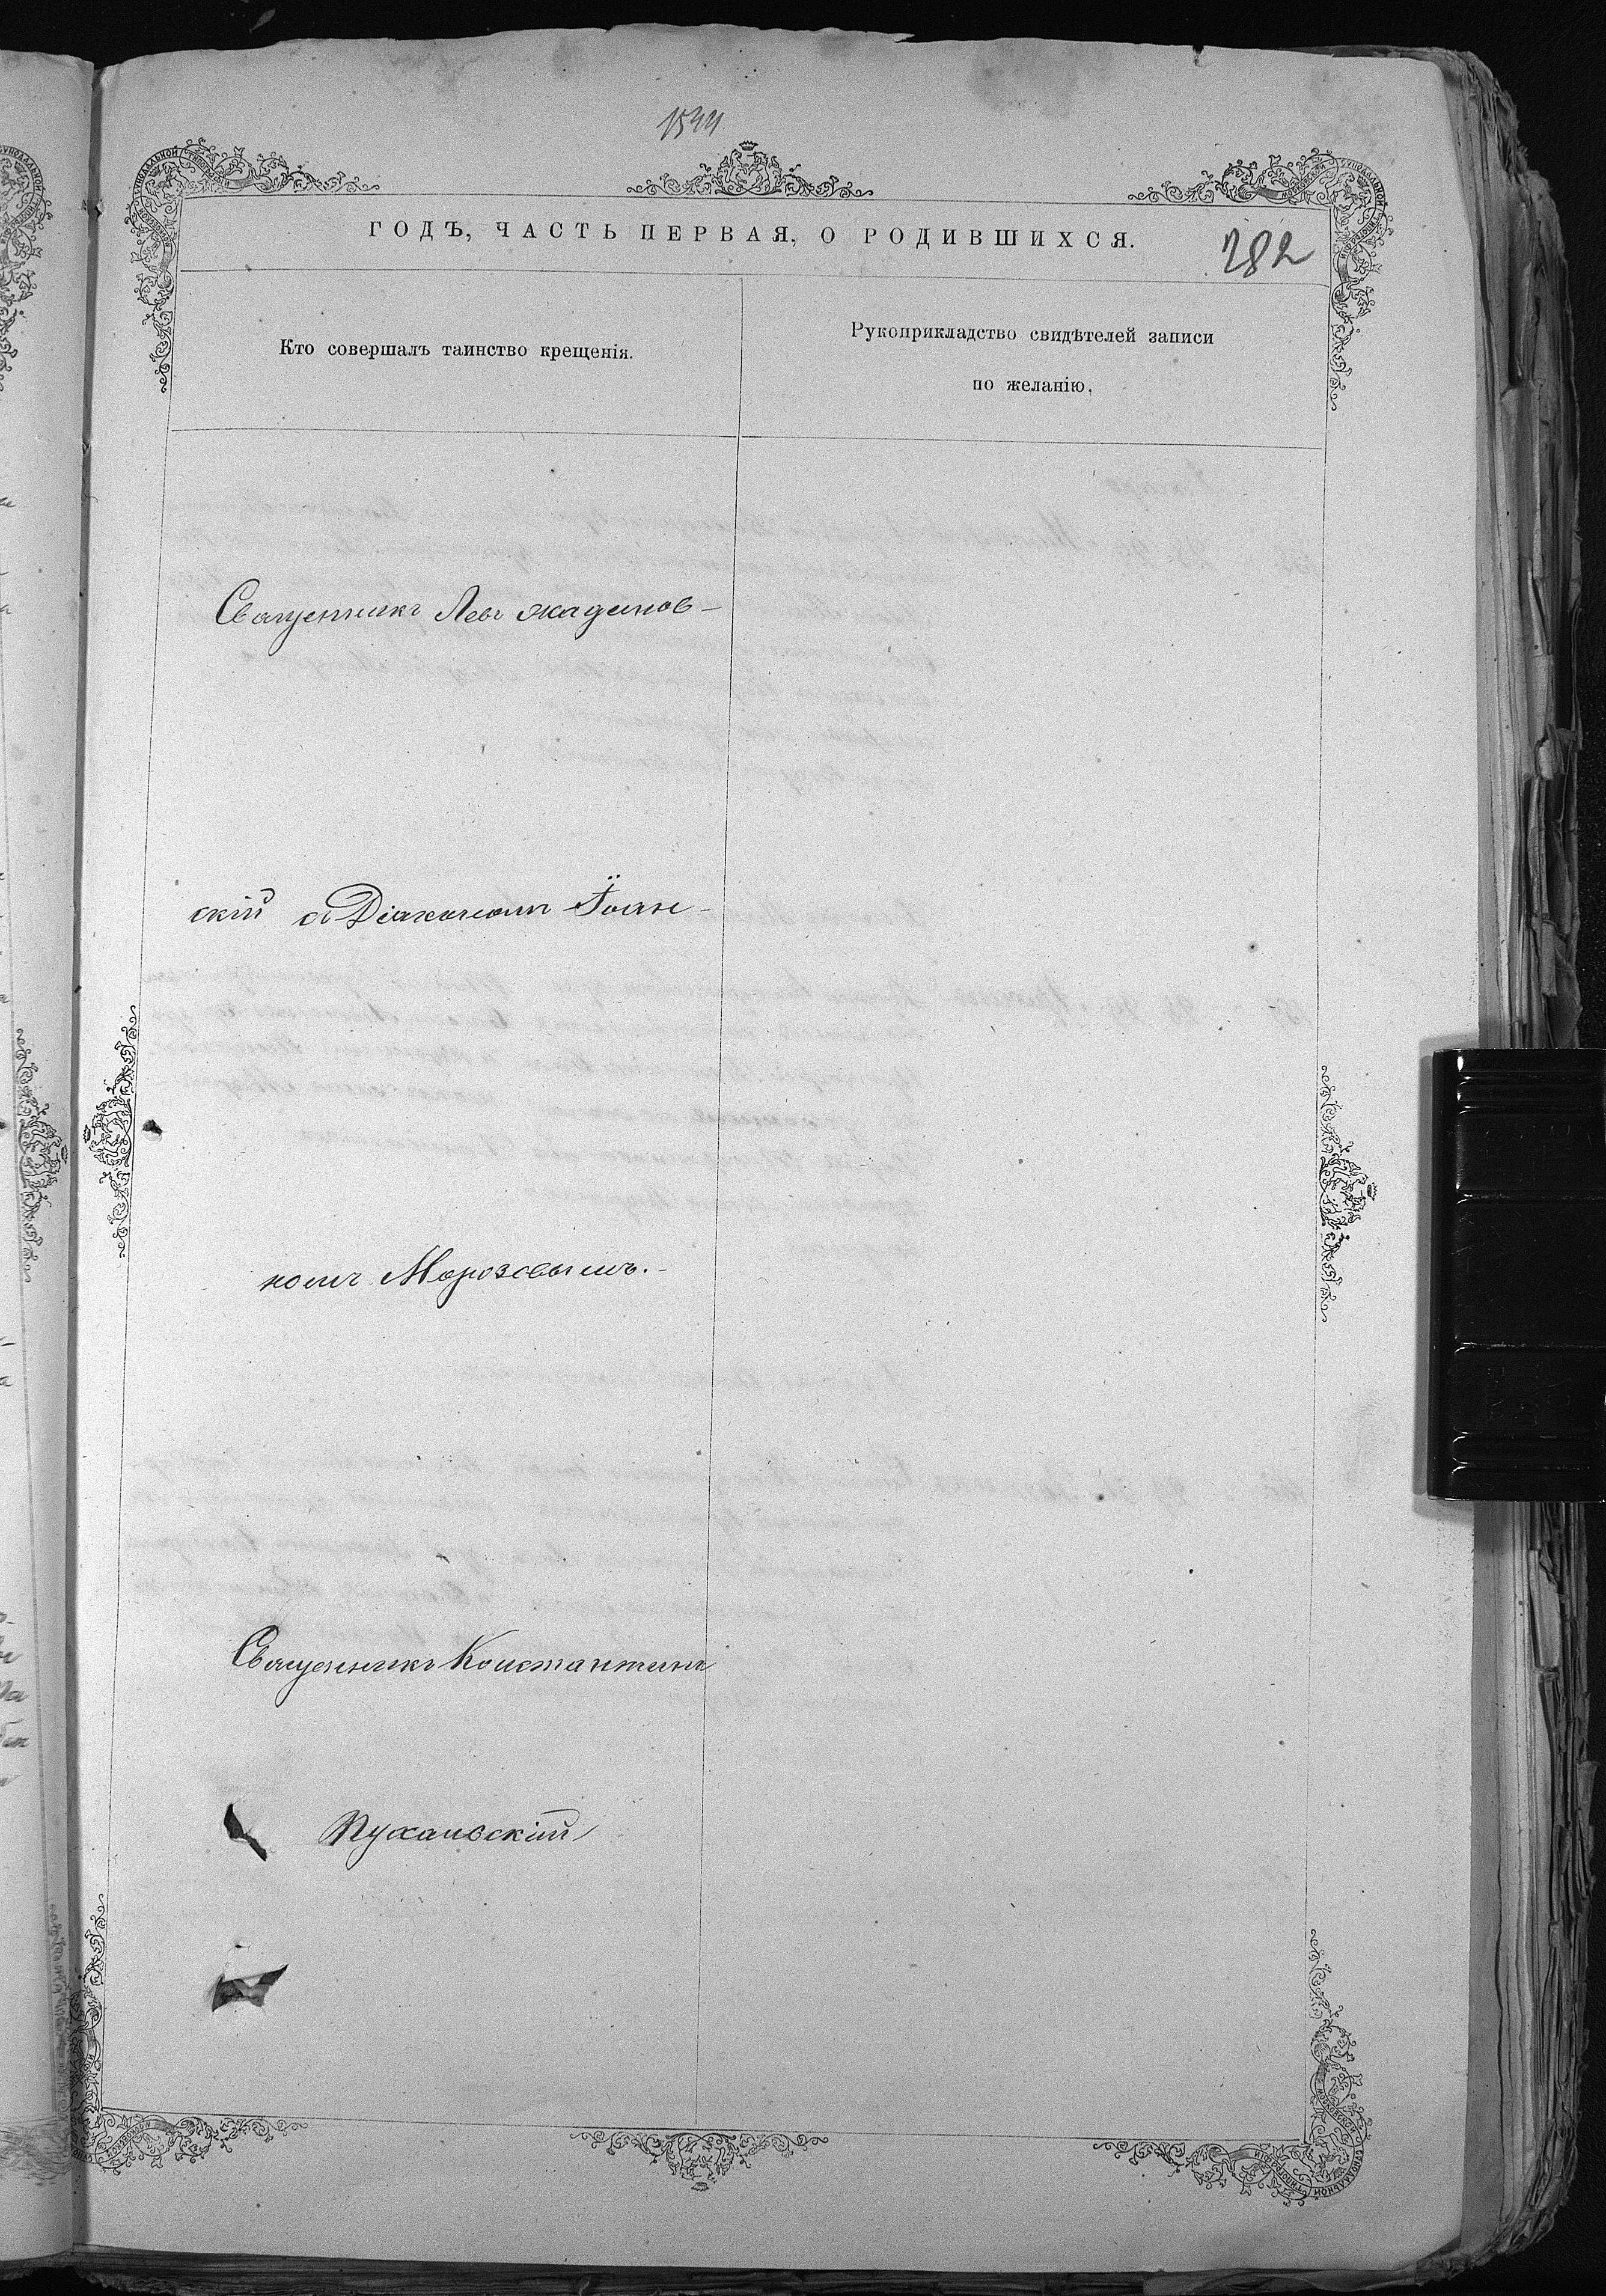 1544
ГОДЪ, ЧАСТЬ ПЕРВАЯ, О РОДИВШИХСЯ.
282
Кто совершалъ таинство крещенія.
Рукоприкладство свидѣтелей записи
по желанію.
Священникъ Левъ Жадинов-
скій съ Діакономъ Іоан-
номъ Морозовымъ.-
Священникъ Константинъ